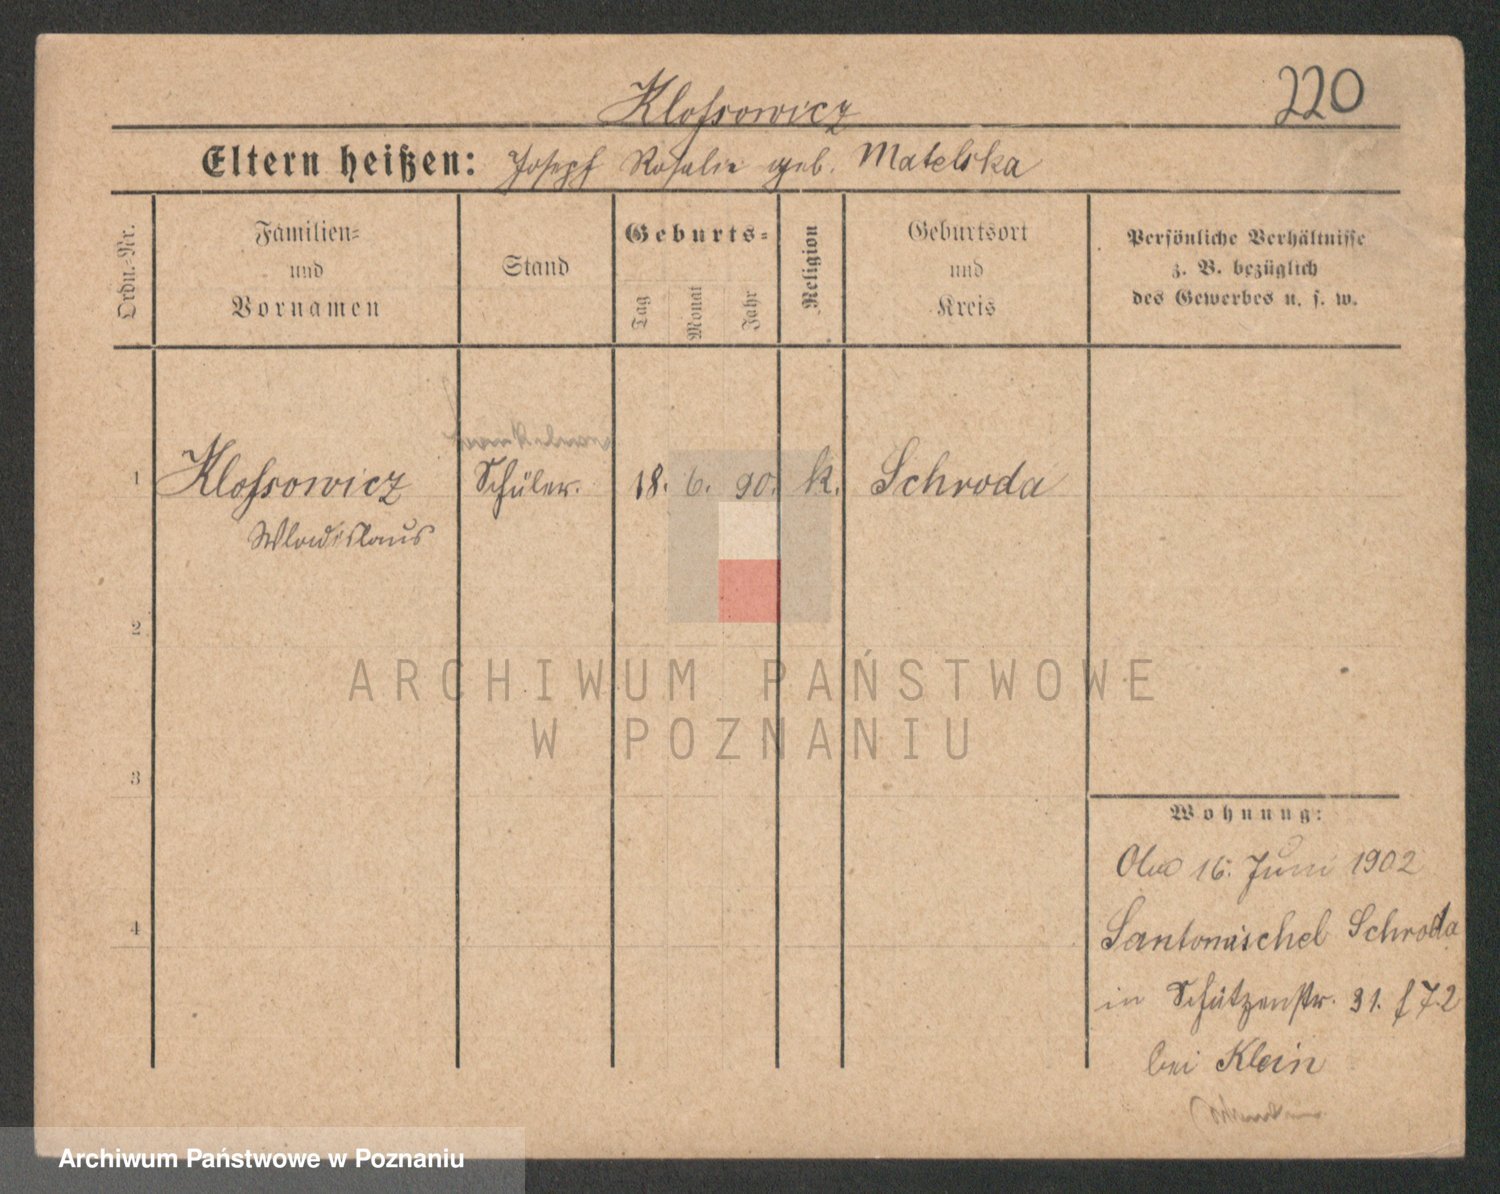 Klossowicz
220
Eltern heißen: Joseph Rosalie geb. Matelska
Ordn.-Nr.
Familien-
und
Vornamen
Stand
Geburts-
Tag
Monat
Jahr
Religion
Geburtsort
und
Kreis
Persönliche Verhältnisse
z. B. bezüglich
des Gewerbes u. s. w.
1 Klossowicz Schüler. 18. 6. 90. k. Schroda
Wladislaus
2
3
4
Wohnung:
16. Juni 1902
Santomischel Schroda
in Schützenstr. 31.
bei Klein
ARCHIWUM PAŃSTWOWE
W POZNANIU
Archiwum Państwowe w Poznaniu